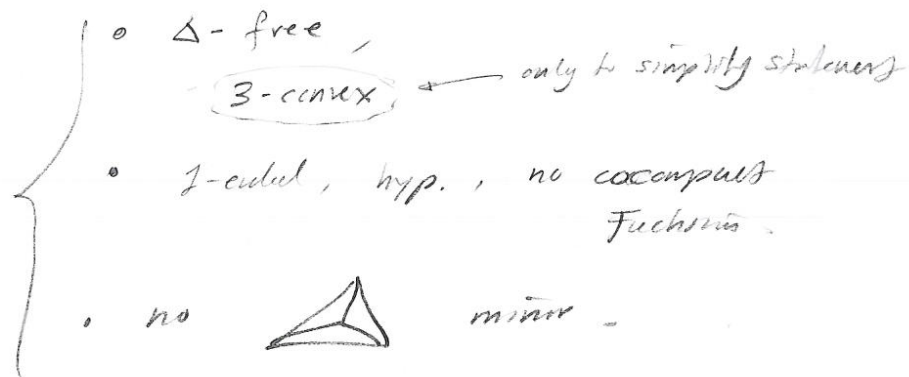 • Δ - free,
3-convex ← only to simplify statement
• 1-ended, hyp., no cocompact
Fuchsian.
• no minor.